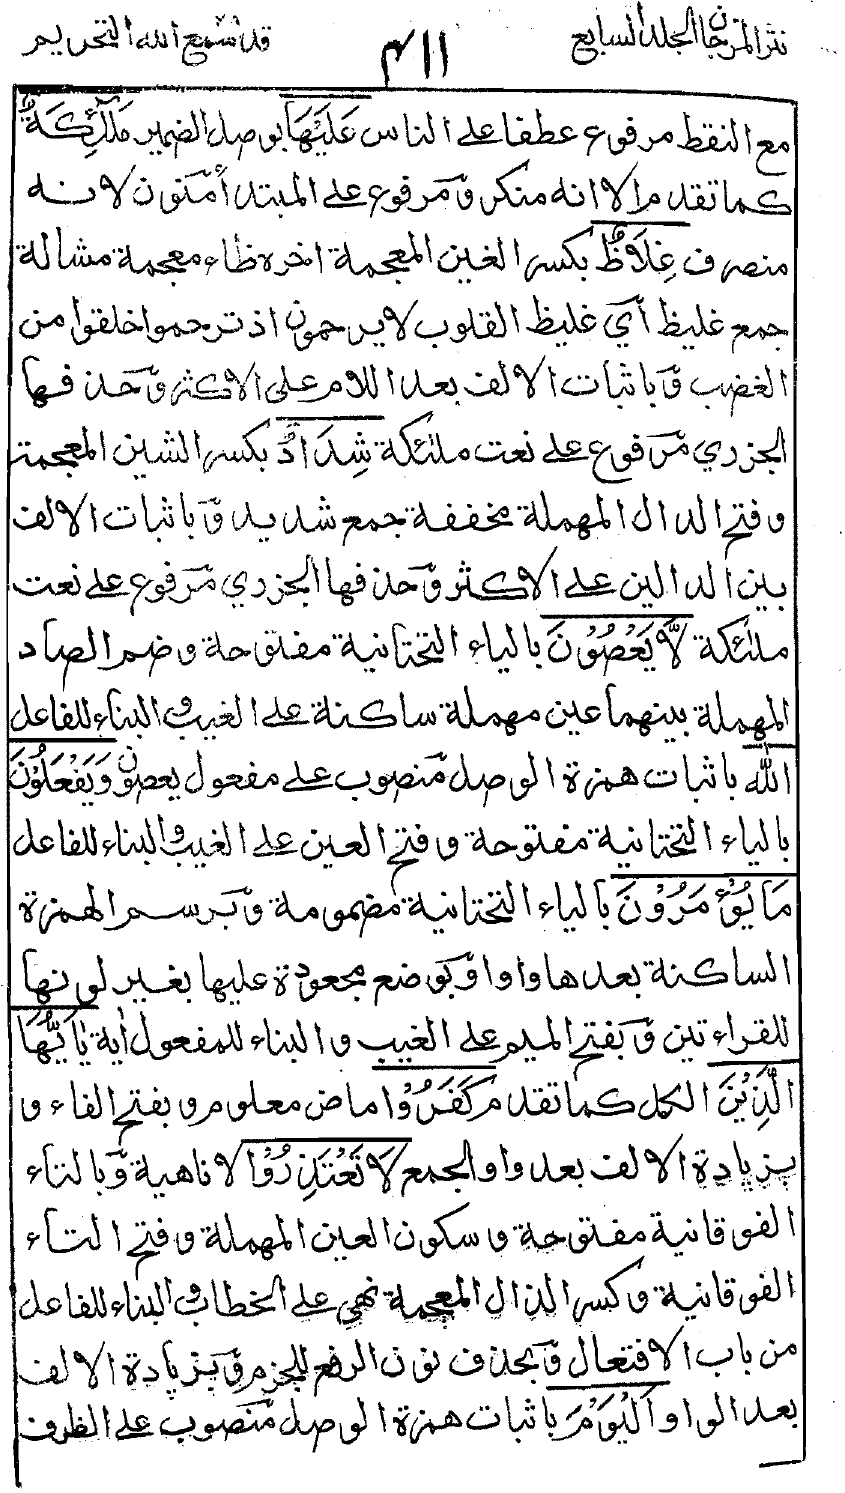 نثر المرجان الجلد السابع
٤١١
قد سمع الله التحريم
مع النقط مرفوع عطفا على الناس عَلَيْهَا بوصل الضمير مَلٰٓئِكَةٌ
كما تقدم الا انه منكر ومرفوع على المبتدأ منون لانه
منصرف غِلَاظٌ بكسر الغين المعجمة اخره ظاء معجمة مشالة
جمع غليظ أي غليظ القلوب لا يرحمون اذ ترحموا خلقوا من
الغضب وباثبات الالف بعد اللام على الاكثر وحذفها
الجزري مرفوع على نعت ملئكة شِدَادٌ بكسر الشين المعجمة
وفتح الدال المهملة مخففة جمع شديد وباثبات الالف
بين الدالين على الاكثر وحذفها الجزري مرفوع على نعت
ملئكة لَّا يَعْصُوْنَ بالياء التحتانية مفتوحة وضم الصاد
المهملة بينهما عين مهملة ساكنة على الغيب والبناء للفاعل
اللّٰه باثبات همزة الوصل منصوب على مفعول يعصون وَيَفْعَلُوْنَ
بالياء التحتانية مفتوحة وفتح العين على الغيب والبناء للفاعل
مَا يُؤْمَرُوْنَ بالياء التحتانية مضمومة وبرسم الهمزة
الساكنة بعدها واوا وبوضع مجعودة عليها بغير لونها
للقراءتين وبفتح الميم على الغيب والبناء للمفعول أية يٰٓاَيُّهَا
الَّذِيْنَ الكل كما تقدم كَفَرُوْا ماض معلوم وبفتح الفاء و
بزيادة الالف بعد واو الجمع لَا تَعْتَذِرُوْا لا ناهية وبالتاء
الفوقانية مفتوحة وسكون العين المهملة وفتح التاء
الفوقانية وكسر الذال المعجمة نهي على الخطاب والبناء للفاعل
من باب الافتعال وبحذف نون الرفع للجزم وبزيادة الالف
بعد الواو اَلْيَوْمَ باثبات همزة الوصل منصوب على الظرف